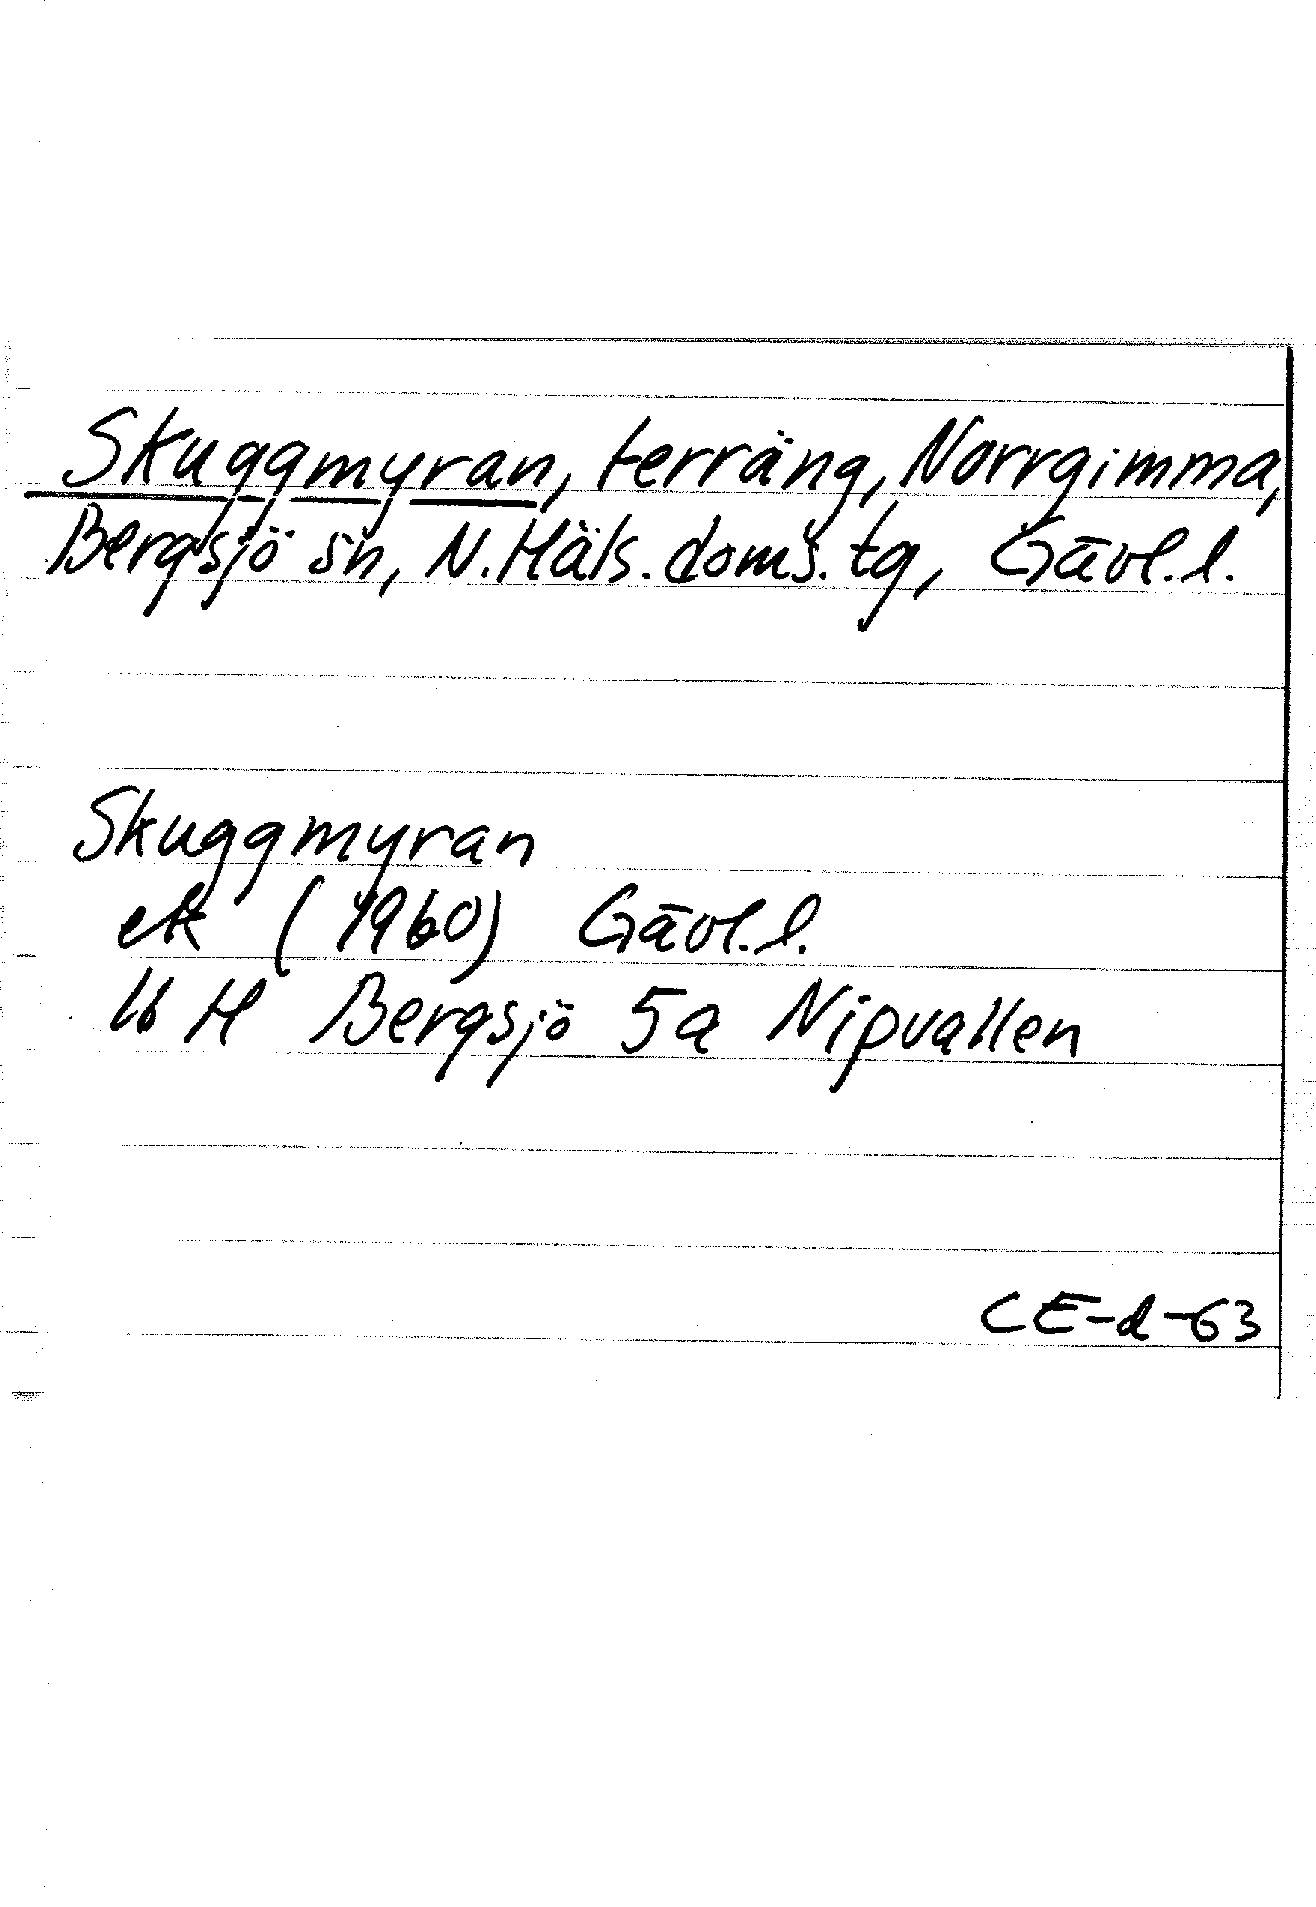 Skuggmyran, terräng, Norrgimma,
Bergsjö sn, N. Häls. doms. tg, Gävl. l.
Skuggmyran
ek (1960) Gävl. l.
16 H Bergsjö 5a Nipvallen
CE-d-63